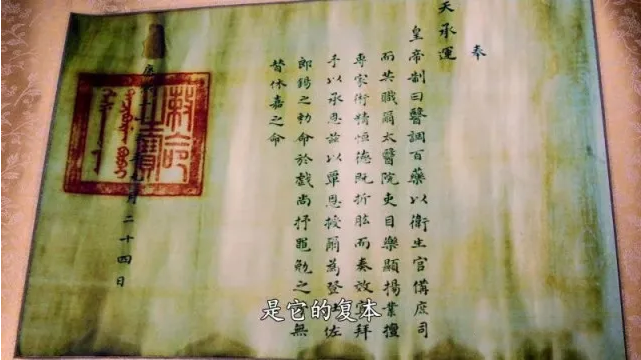 奉
天承運
皇帝制曰醫調百藥以衛生官備庶司
而共職爾太醫院吏目樂顯揚業擅
專家術精恒德既折肱而奏效宜拜
手以承恩茲以覃恩授爾為登仕佐
郎錫之勅命於戲尚抒黽勉之才無
替休嘉之命
康 月二十四日
敕命之寶
是它的复本